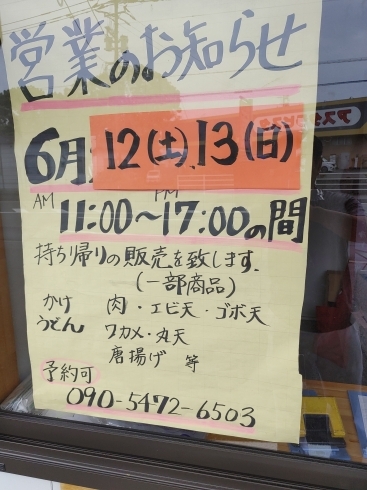 営業のお知らせ
6月12(土)、13(日)
AM PM
11:00~17:00の間
持ち帰りの販売を致します。
(一部商品)
かけ 肉・エビ天・ゴボ天
うどん ワカメ・丸天
唐揚げ 等
予約可
090-5472-6503